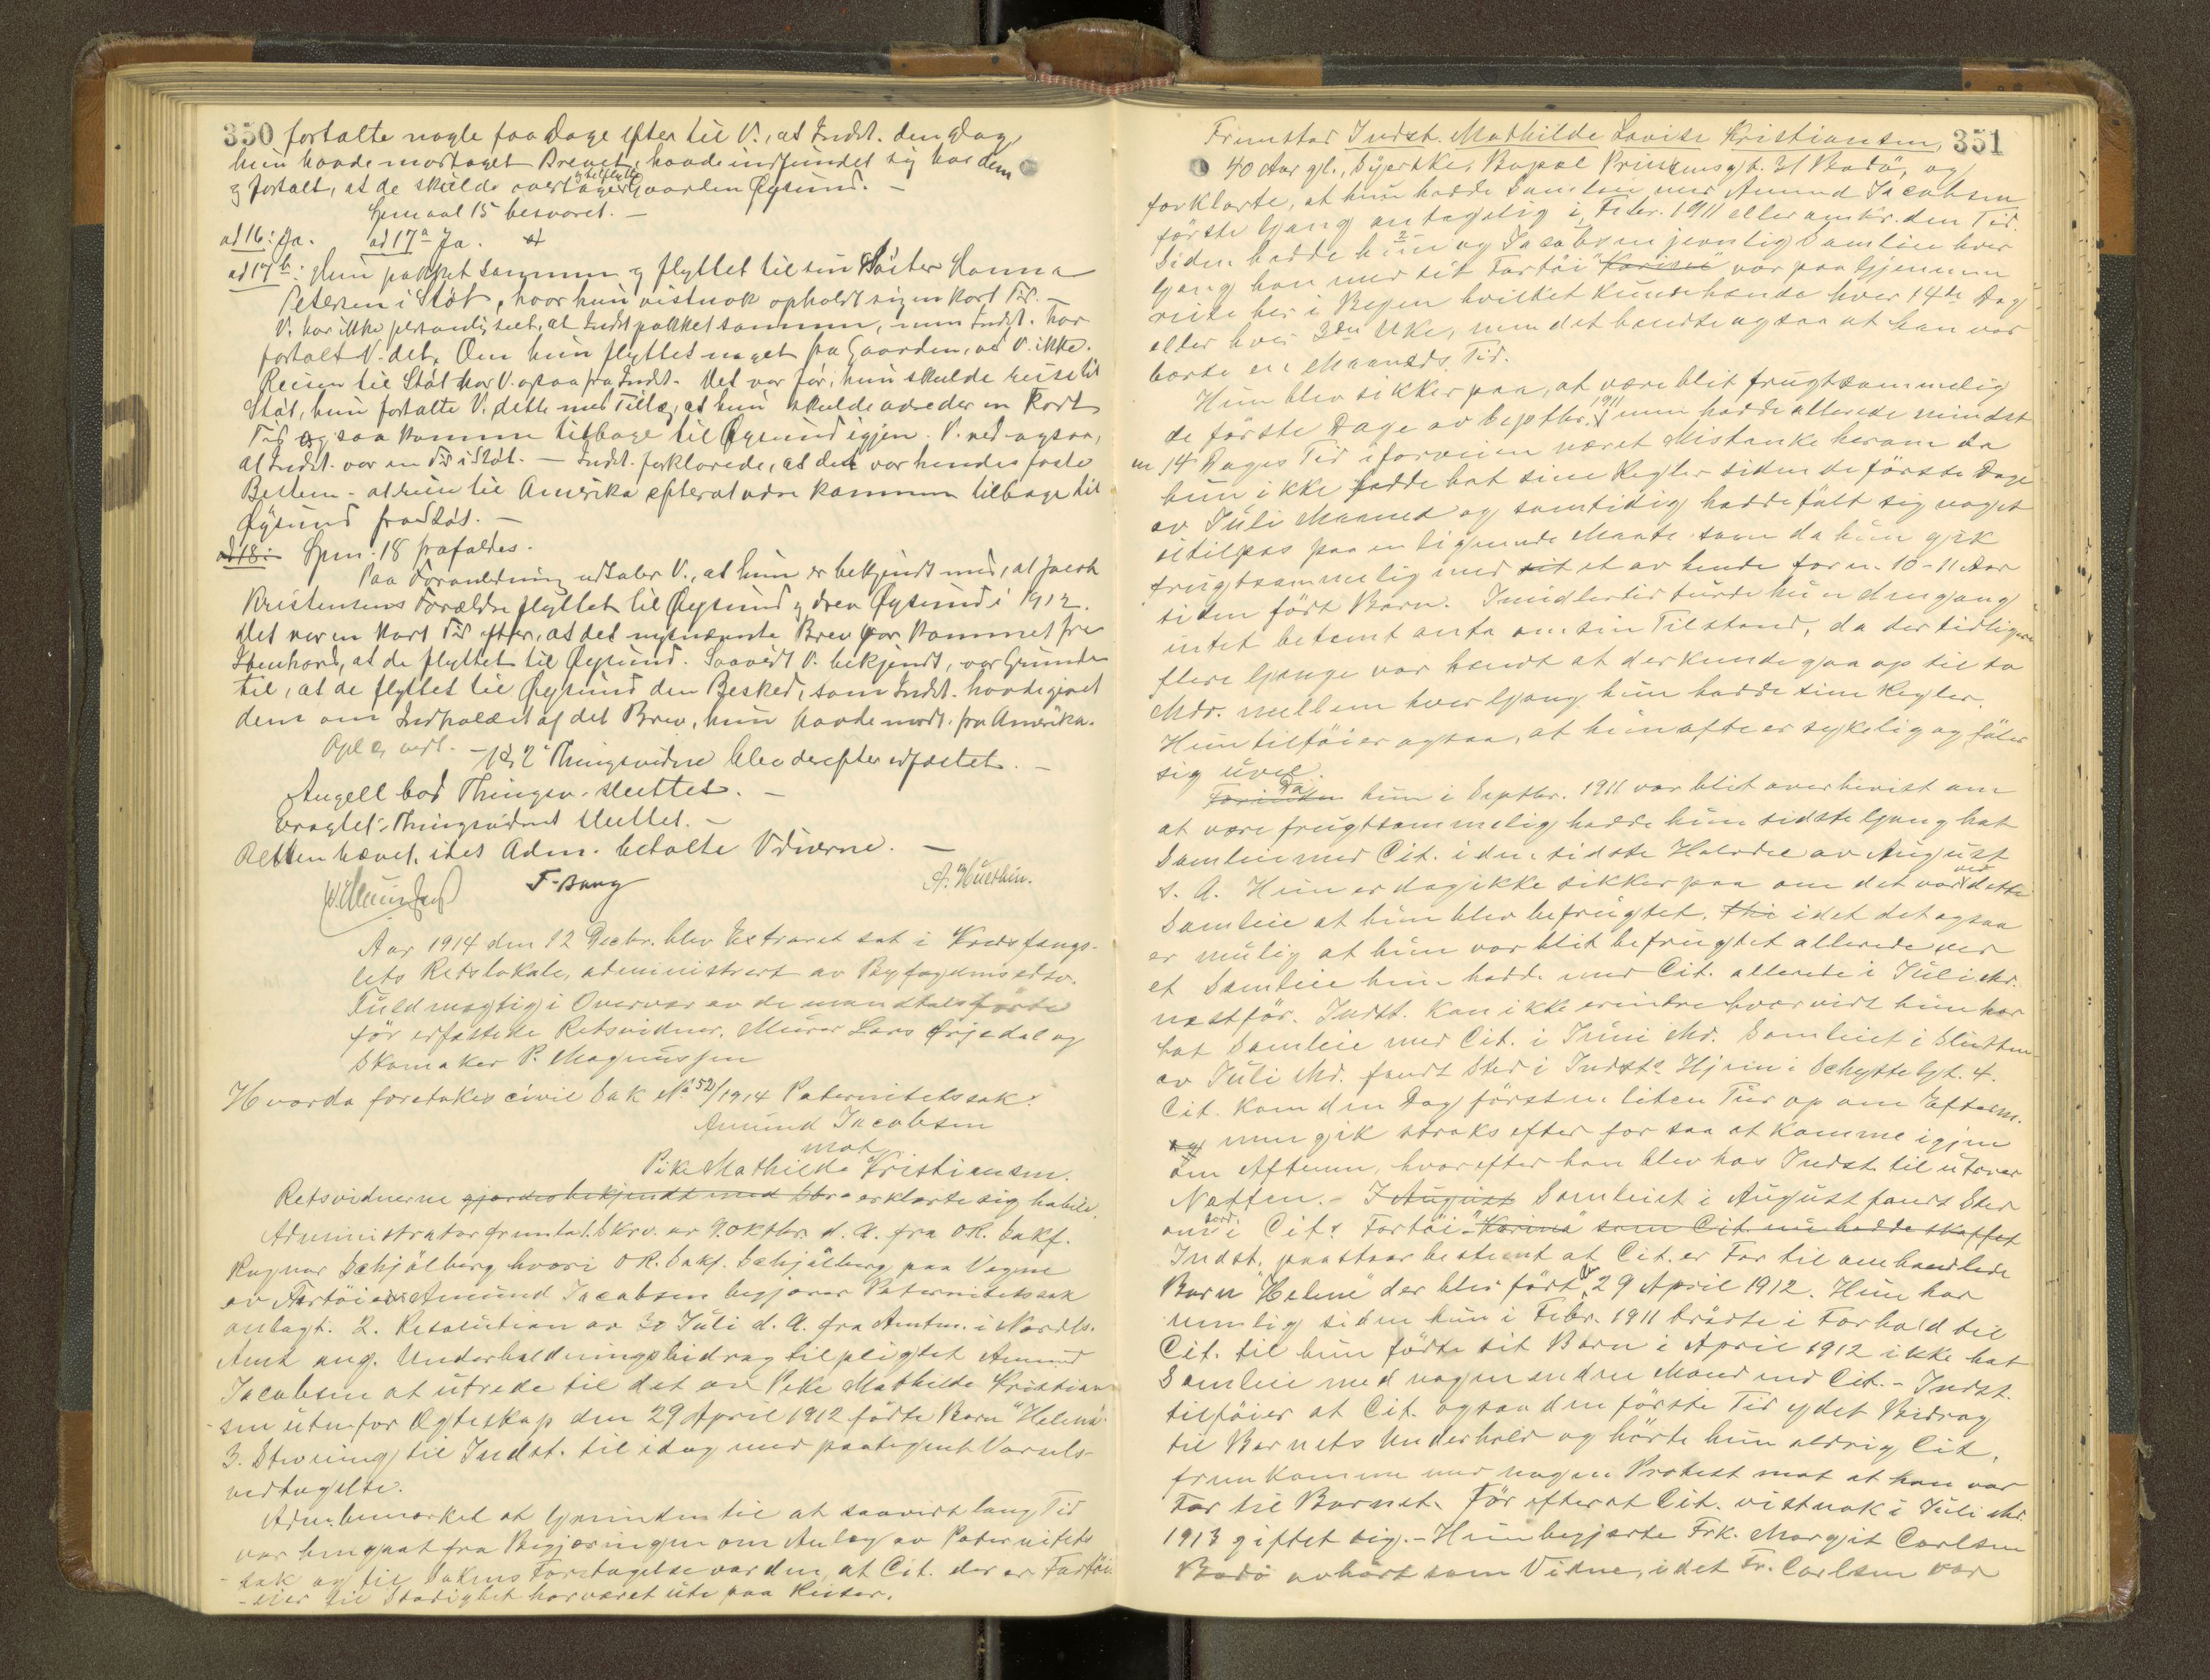 350 fortalte nogle faa Dage efter til V., at Indst. den Dag,
hun havde mottaget Brevet, havde indfundet sig hos dem
og fortalt, at de skulde overtage Gaarden Øysund. –
Spmaal 15 besvaret. –
ad 16: Ja. ad 17a Ja.
ad 17b: Hun pakket sammen og flyttet til sin Søster Hanna
Petersen i Støt, hvor hun vistnok opholdt sig en kort Tid. –
V. har ikke personlig seet, at Indst pakket sammen, men Indst. har
fortalt V. det. Om hun flyttet noget fra Gaarden, ved V. ikke.
Reisen til Støt har V. ogsaa fra Indst. Det var før, hun skulde reise til
Støt, hun fortalte V. dette med Tillæg, at hun skulde være der en kort
Tid og saa komme tilbage til Øysund igjen. V. ved ogsaa,
at Indst. var en Tid i Støt. – Indst. forklarede, at det var hendes faste
Bestem- at reise til Amerika efter at være kommen tilbage til
Øysund fra Støt. –
ad 18: Spm. 18 frafaldes.
Paa Foranledning udtaler V., at hun er bekjendt med, at Jacob
Kristensens Forældre flyttet til Øysund og drev Øysund i 1912.
Det var en kort Tid efter, at det nysnævnte Brev var kommet fra
at de flyttet til Øysund. Saavidt V. bekjendt, var Grunden
til, at de flyttet til Øysund den Besked, som Indst. havde givet
dem om Indholdet af det Brev, hun havde modt. fra Amerika.
Opl. og vedt. – Thingsvidne blev derefter
Angell bad Thingsv. sluttet. –
Thingsvidnet sluttet. –
Retten hævet, idet Adm. betalte Vidnerne. –
F. Bang
Aar 1914 den 12 Decbr. blev Extraret sat i Kredsfængs-
lets Retslokale, administrert av Byfogdens edsv.
Fuldmægtig i Overvær av de mandtalsførte
før edfæstede Retsvidner, Murer Lars Ørjedal og
Skomaker P. Magnussen
Hvorda foretokes civil Sak No 52/1914 Paternitetssak:
Amund Jacobsen
mot
Pike Mathilde Kristiansen.
Retsvidnerne gjordes bekjendt med erklærte sig habile.
Administrator fremla 1. Skrv. av 9. Oktbr. d. A. fra OR. Sakf.
Ragnar Schjølberg hvori OR. Sakf. Schjølberg paa Vegne
av Fartøieier Amund Jacobsen begjærer Paternitetssak
anlagt. 2. Resolution av 30 Juli d. A. fra Amtm. i Nordls.
Amt ang. Underholdningsbidrag tilpligtet Amund
Jacobsen at utrede til det av Pike Mathilde Kristian-
sen utenfor Ægteskap den 29 April 1912 fødte Barn "Helene".
3. Stevning til Indst. til idag med paategnet Varsels-
vedtagelse.
Adm. bemærket at Grunden til at saavidt lang Tid
var hengaat fra Begjæringen om Anlæg av Paternitets
-sak og til Sakens Foretagelse var den, at Cit. der er Fartøi-
-eier til Stadighet har været ute paa Reiser.
351
Fremstod Indst. Mathilde Lovise Kristiansen,
40 Aar gl., Syerske, Bopæl Prinsensgt. 31 Bodø, og
forklarte, at hun hadde Samleie med Amund Jacobsen
første Gang antagelig i Febr. 1911 eller omkr. den Tid.
Siden hadde hun og Jacobsen jevnlig Samleie hver
Gang han med sit Fartøi "Karina" var paa Gjennem
reise her i Byen hvilket kunde hænde hver 14de Dag
eller hver 3die Uke, men det hændte ogsaa at han var
borte en Maaneds Tid.
Hun blev sikker paa, at være blit frugtsommelig
de første Dage av Septbr. 1911 men hadde allerede mindst
en 14 Dages Tid iforveien næret Mistanke herom da
hun ikke hadde hat sine Regler siden de første Dage
av Juli Maaned og samtidig hadde følt sig noget
utilpas paa en lignende Maate som da hun gik
frugtsommelig med sit et av hende for en 10-11 Aar
siden født Barn. Imidlertid turde hun dengang
intet bestemt anta om sin Tilstand, da der tidligere
flere Gange var hændt at der kunde gaa op til to
Mdr. mellem hver Gang hun hadde sine Regler.
Hun tilføier ogsaa, at hun ofte er sykelig og føler
sig uvel.
Da hun i Septbr. 1911 var blit overbevist om
at være frugtsommelig hadde hun sidste Gang hat
Samleie med Cit. i den sidste Halvdel av August
s. A. Hun er dog ikke sikker paa om det var ved dette
Samleie at hun blev befrugtet, thi idet det ogsaa
er mulig at hun var blit befrugtet allerede ved
et Samleie hun hadde med Cit. allerede i Juli Md.
næstfør. Indst. kan ikke erindre hvorvidt hun har
hat Samleie med Cit. i Juni Md. Samleiet i Slutten
av Juli Md. fandt Sted i Indsts Hjem i Schyttegt. 4.
Cit. kom den Dag først en liten Tur op om Efterm.
og men gik straks efter for saa at komme igjen
om Aftenen, hvorefter han blev hos Indst. til utover
Natten. – I August Samleiet i August fandt Sted
ombord i Cits Fartøi "Karina" som Cit. nu hadde skaffet
Indst. paastaar bestemt at Cit. er Far til omhandlede
Barn "Helene" der blev født 29 April 1912. Hun har
nemlig siden hun i Febr. 1911 traadte i Forhold til
Cit. til hun fødte sit Barn i April 1912 ikke hat
Samleie med nogen anden Mand end Cit. – Indst.
tilføier at Cit. ogsaa den første Tid ydet Bidrag
til Barnets Underhold og hørte hun aldrig Cit.
fremkomme med nogen Protest mot at han var
Far til Barnet før efterat Cit. vistnok i Juli Md.
1913 giftet sig. – Hun begjærte Frk. Margit Carlsen
Bodø avhørt som Vidne, idet Fr. Carlsen var